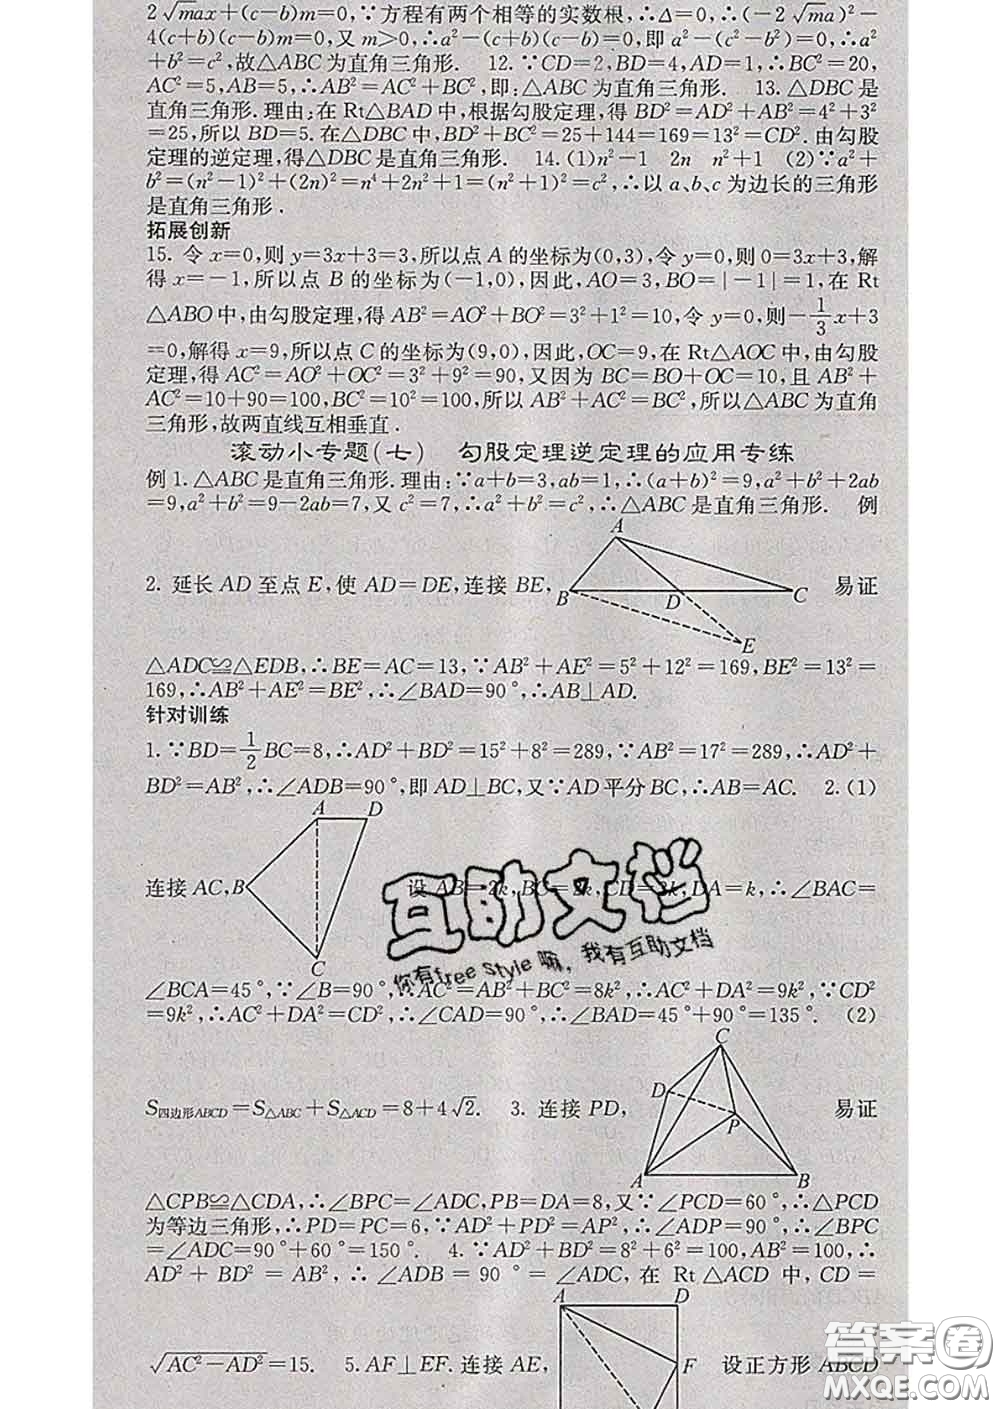 2√max+(c-b)m=0,∵方程有两个相等的实数根,∴Δ=0,∴(-2√ma)²-
4(c+b)(c-b)m=0,又m>0,∴a²-(c+b)(c-b)=0,即a²-(c²-b²)=0,∴a²
+b²=c²,故△ABC为直角三角形. 12.∵CD=2,BD=4,AD=1,∴BC²=20,
AC²=5,AB=5,∴AB²=AC²+BC²,即:△ABC为直角三角形. 13.△DBC是
直角三角形.理由:在Rt△BAD中,根据勾股定理,得BD²=AD²+AB²=4²+3²
=25,所以BD=5.在△DBC中,BD²+BC²=25+144=169=13²=CD².由勾股
定理的逆定理,得△DBC是直角三角形. 14.(1)n²-1 2n n²+1 (2)∵a²+
b²=(n²-1)²+(2n)²=n⁴+2n²+1=(n²+1)²=c²,∴以a、b、c为边长的三角形
是直角三角形.
拓展创新
15. 令x=0,则y=3x+3=3,所以点A的坐标为(0,3),令y=0,则0=3x+3,解
得x=-1,所以点B的坐标为(-1,0),因此,AO=3,BO=|-1|=1,在Rt
△ABO中,由勾股定理,得AB²=AO²+BO²=3²+1²=10,令y=0,则-1/3x+3
=0,解得x=9,所以点C的坐标为(9,0),因此,OC=9,在Rt△AOC中,由勾股
定理,得AC²=AO²+OC²=3²+9²=90,又因为BC=BO+OC=10,且AB²+
AC²=10+90=100,BC²=10²=100,所以AB²+AC²=BC²,所以△ABC为直角
三角形,故两直线互相垂直.
滚动小专题(七) 勾股定理逆定理的应用专练
例1.△ABC是直角三角形.理由:∵a+b=3,ab=1,∴(a+b)²=9,a²+b²+2ab
=9,a²+b²=9-2ab=7,又c²=7,∴a²+b²=c²,∴△ABC是直角三角形. 例
A
2. 延长AD至点E,使AD=DE,连接BE, B D C 易证
E
△ADC≌△EDB,∴BE=AC=13,∵AB²+AE²=5²+12²=169,BE²=13²=
169,∴AB²+AE²=BE²,∴∠BAD=90°,∴AB⊥AD.
针对训练
1.∵BD=1/2BC=8,∴AD²+BD²=15²+8²=289,∵AB²=17²=289,∴AD²+
BD²=AB²,∴∠ADB=90°,即AD⊥BC,又∵AD平分BC,∴AB=AC. 2.(1)
A D
连接AC, B 设AB=2k,BC=2k,CD=3k,DA=k,∴∠BAC=
C
∠BCA=45°,∵∠B=90°,∴AC²=AB²+BC²=8k²,∴AC²+DA²=9k²,∵CD²
=9k²,∴AC²+DA²=CD²,∴∠CAD=90°,∴∠BAD=45°+90°=135°. (2)
C
D
S四边形ABCD=S△ABC+S△ACD=8+4√2. 3. 连接PD, P 易证
A B
△CPB≌△CDA,∴∠BPC=∠ADC,PB=DA=8,又∵∠PCD=60°,∴△PCD
为等边三角形,∴PD=PC=6,∵AD²+PD²=AP²,∴∠ADP=90°,∴∠BPC
=∠ADC=90°+60°=150°. 4.∵AD²+BD²=8²+6²=100,AB²=100,∴
AD²+BD²=AB²,∴∠ADB=90°=∠ADC,在Rt△ACD中,CD=
A D
√AC²-AD²=15. 5.AF⊥EF.连接AE, F 设正方形ABCD
互助文档
你有free style嘛,我有互助文档
答案圈
MXQE.COM